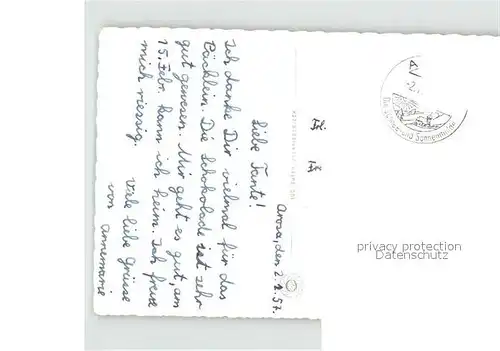 Arosa, den 2.2.57.
Liebe Tante!
Ich danke Dir vielmal für das
Päcklein. Die Schokolade ist sehr
gut gewesen. Mir geht es gut, am
15. Febr. kann ich heim. Ich freue
mich riessig.
Viele liebe Grüsse
von Annemarie
privacy protection
Datenschutz